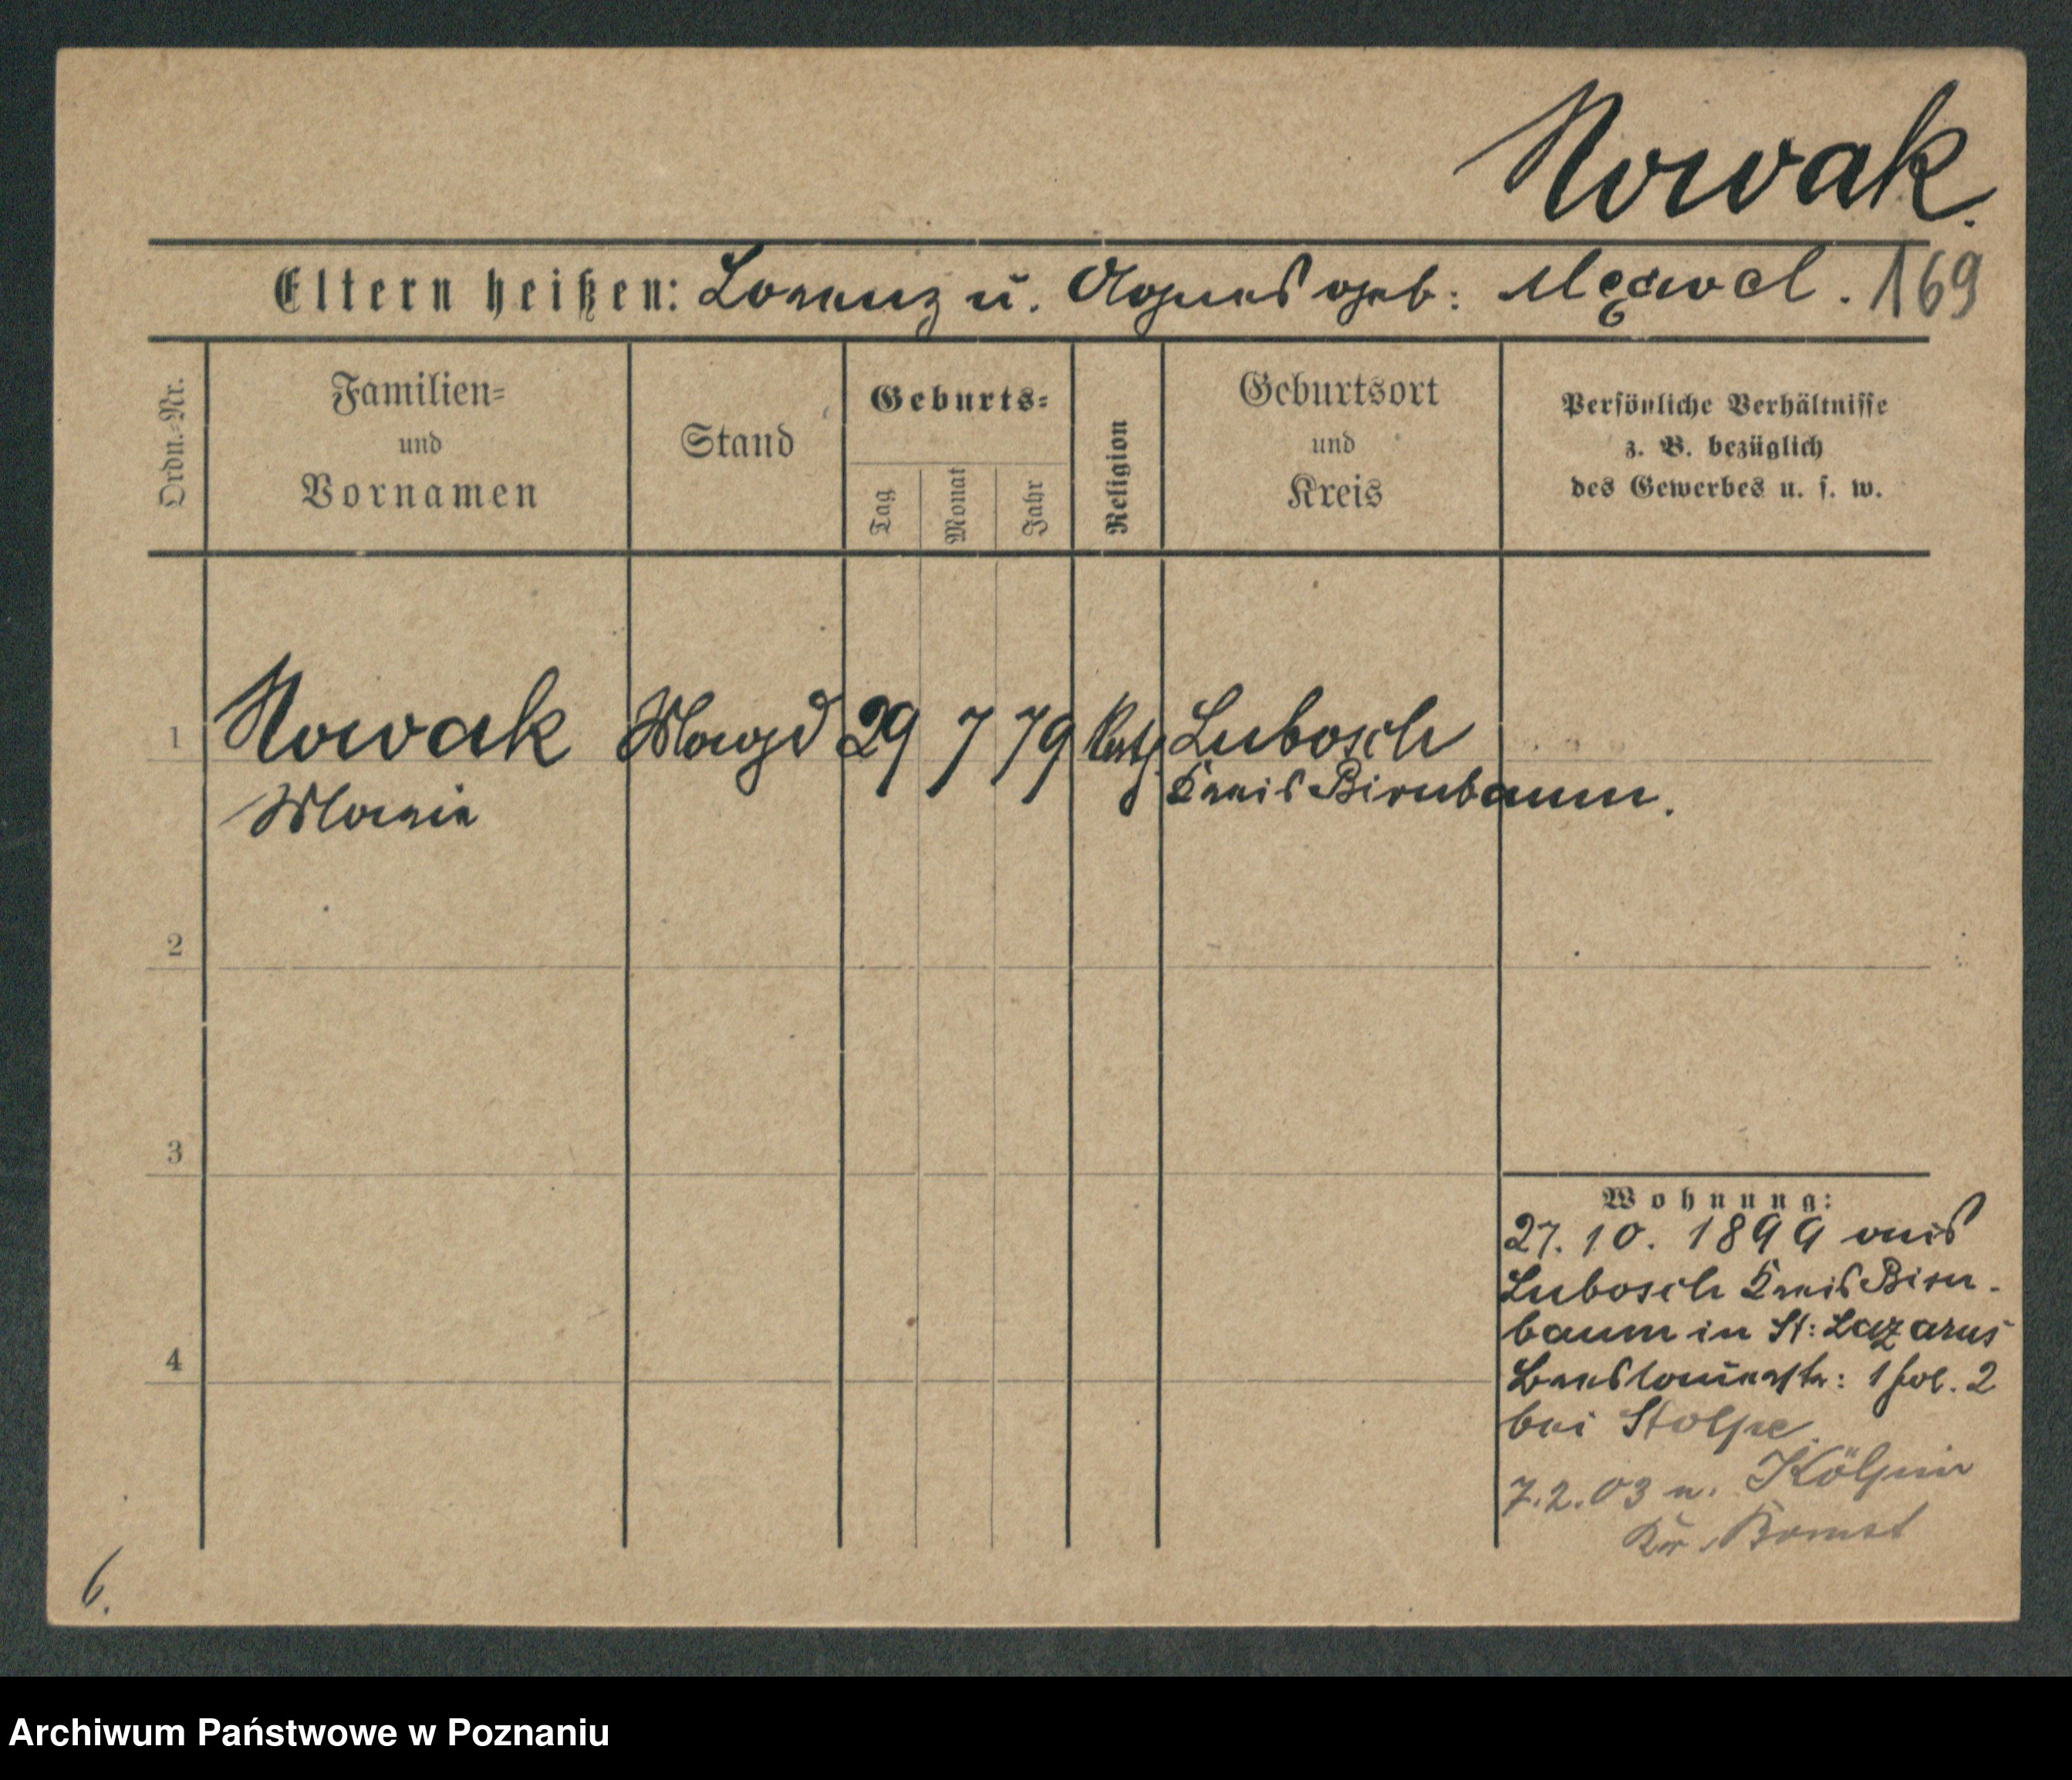 Nowak.
Eltern heißen: Lorenz u. Agnes geb:
169
Ordn.-Nr.
Familien- und Vornamen
Stand
Geburts-
Tag
Monat
Jahr
Religion
Geburtsort und Kreis
Persönliche Verhältnisse
z. B. bezüglich
des Gewerbes u. s. w.
1 Nowak Magd 29 7 79 Kath. Lubosch
Maria Kreis Birnbaum.
2
3
4
Wohnung:
27. 10. 1899 aus
Lubosch Kreis Birn-
baum in St: Lazarus
1 fol. 2
bei Stolpe.
7.2.03 n. Kölpin
Kr. Bomst
6.
Archiwum Państwowe w Poznaniu